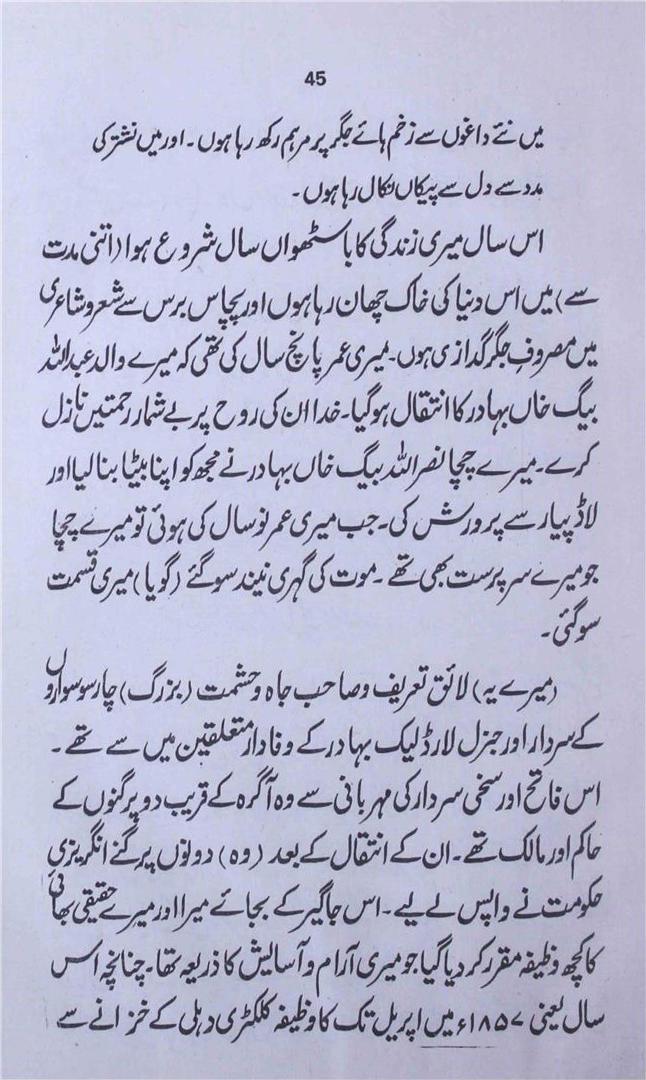 45
میں نئے داغوں سے زخم ہائے جگر پر مرہم رکھ رہا ہوں۔ اور میں نشتر کی
مدد سے دل سے پیکاں نکال رہا ہوں۔
اس سال میری زندگی کا باسٹھواں سال شروع ہوا (اتنی مدت
سے) میں اس دنیا کی خاک چھان رہا ہوں اور پچاس برس سے شعر و شاعری
میں مصروف جگر گدازی ہوں۔ میری عمر پانچ سال کی تھی کہ میرے والد عبداللہ
بیگ خاں بہادر کا انتقال ہوگیا۔ خدا ان کی روح پر بے شمار رحمتیں نازل
کرے۔ میرے چچا نصراللہ بیگ خاں بہادر نے مجھ کو اپنا بیٹا بنا لیا اور
لاڈ پیار سے پرورش کی۔ جب میری عمر نو سال کی ہوئی تو میرے چچا
جو میرے سرپرست بھی تھے۔ موت کی گہری نیند سو گئے (گویا) میری قسمت
سو گئی۔
(میرے یہ) لائق تعریف و صاحب جاہ و حشمت (بزرگ) چار سو سواروں
کے سردار اور جنرل لارڈ لیک بہادر کے وفادار متعلقین میں سے تھے۔
اس فاتح اور سخی سردار کی مہربانی سے وہ آگرہ کے قریب دو پرگنوں کے
حاکم اور مالک تھے۔ ان کے انتقال کے بعد (وہ) دونوں پرگنے انگریزی
حکومت نے واپس لے لیے۔ اس جاگیر کے بجائے میرا اور میرے حقیقی بھائی
کا کچھ وظیفہ مقرر کر دیا گیا جو میری آرام و آسایش کا ذریعہ تھا۔ چنانچہ اس
سال یعنی ۱۸۵۷ء میں اپریل تک کا وظیفہ کلکٹری دہلی کے خزانے سے